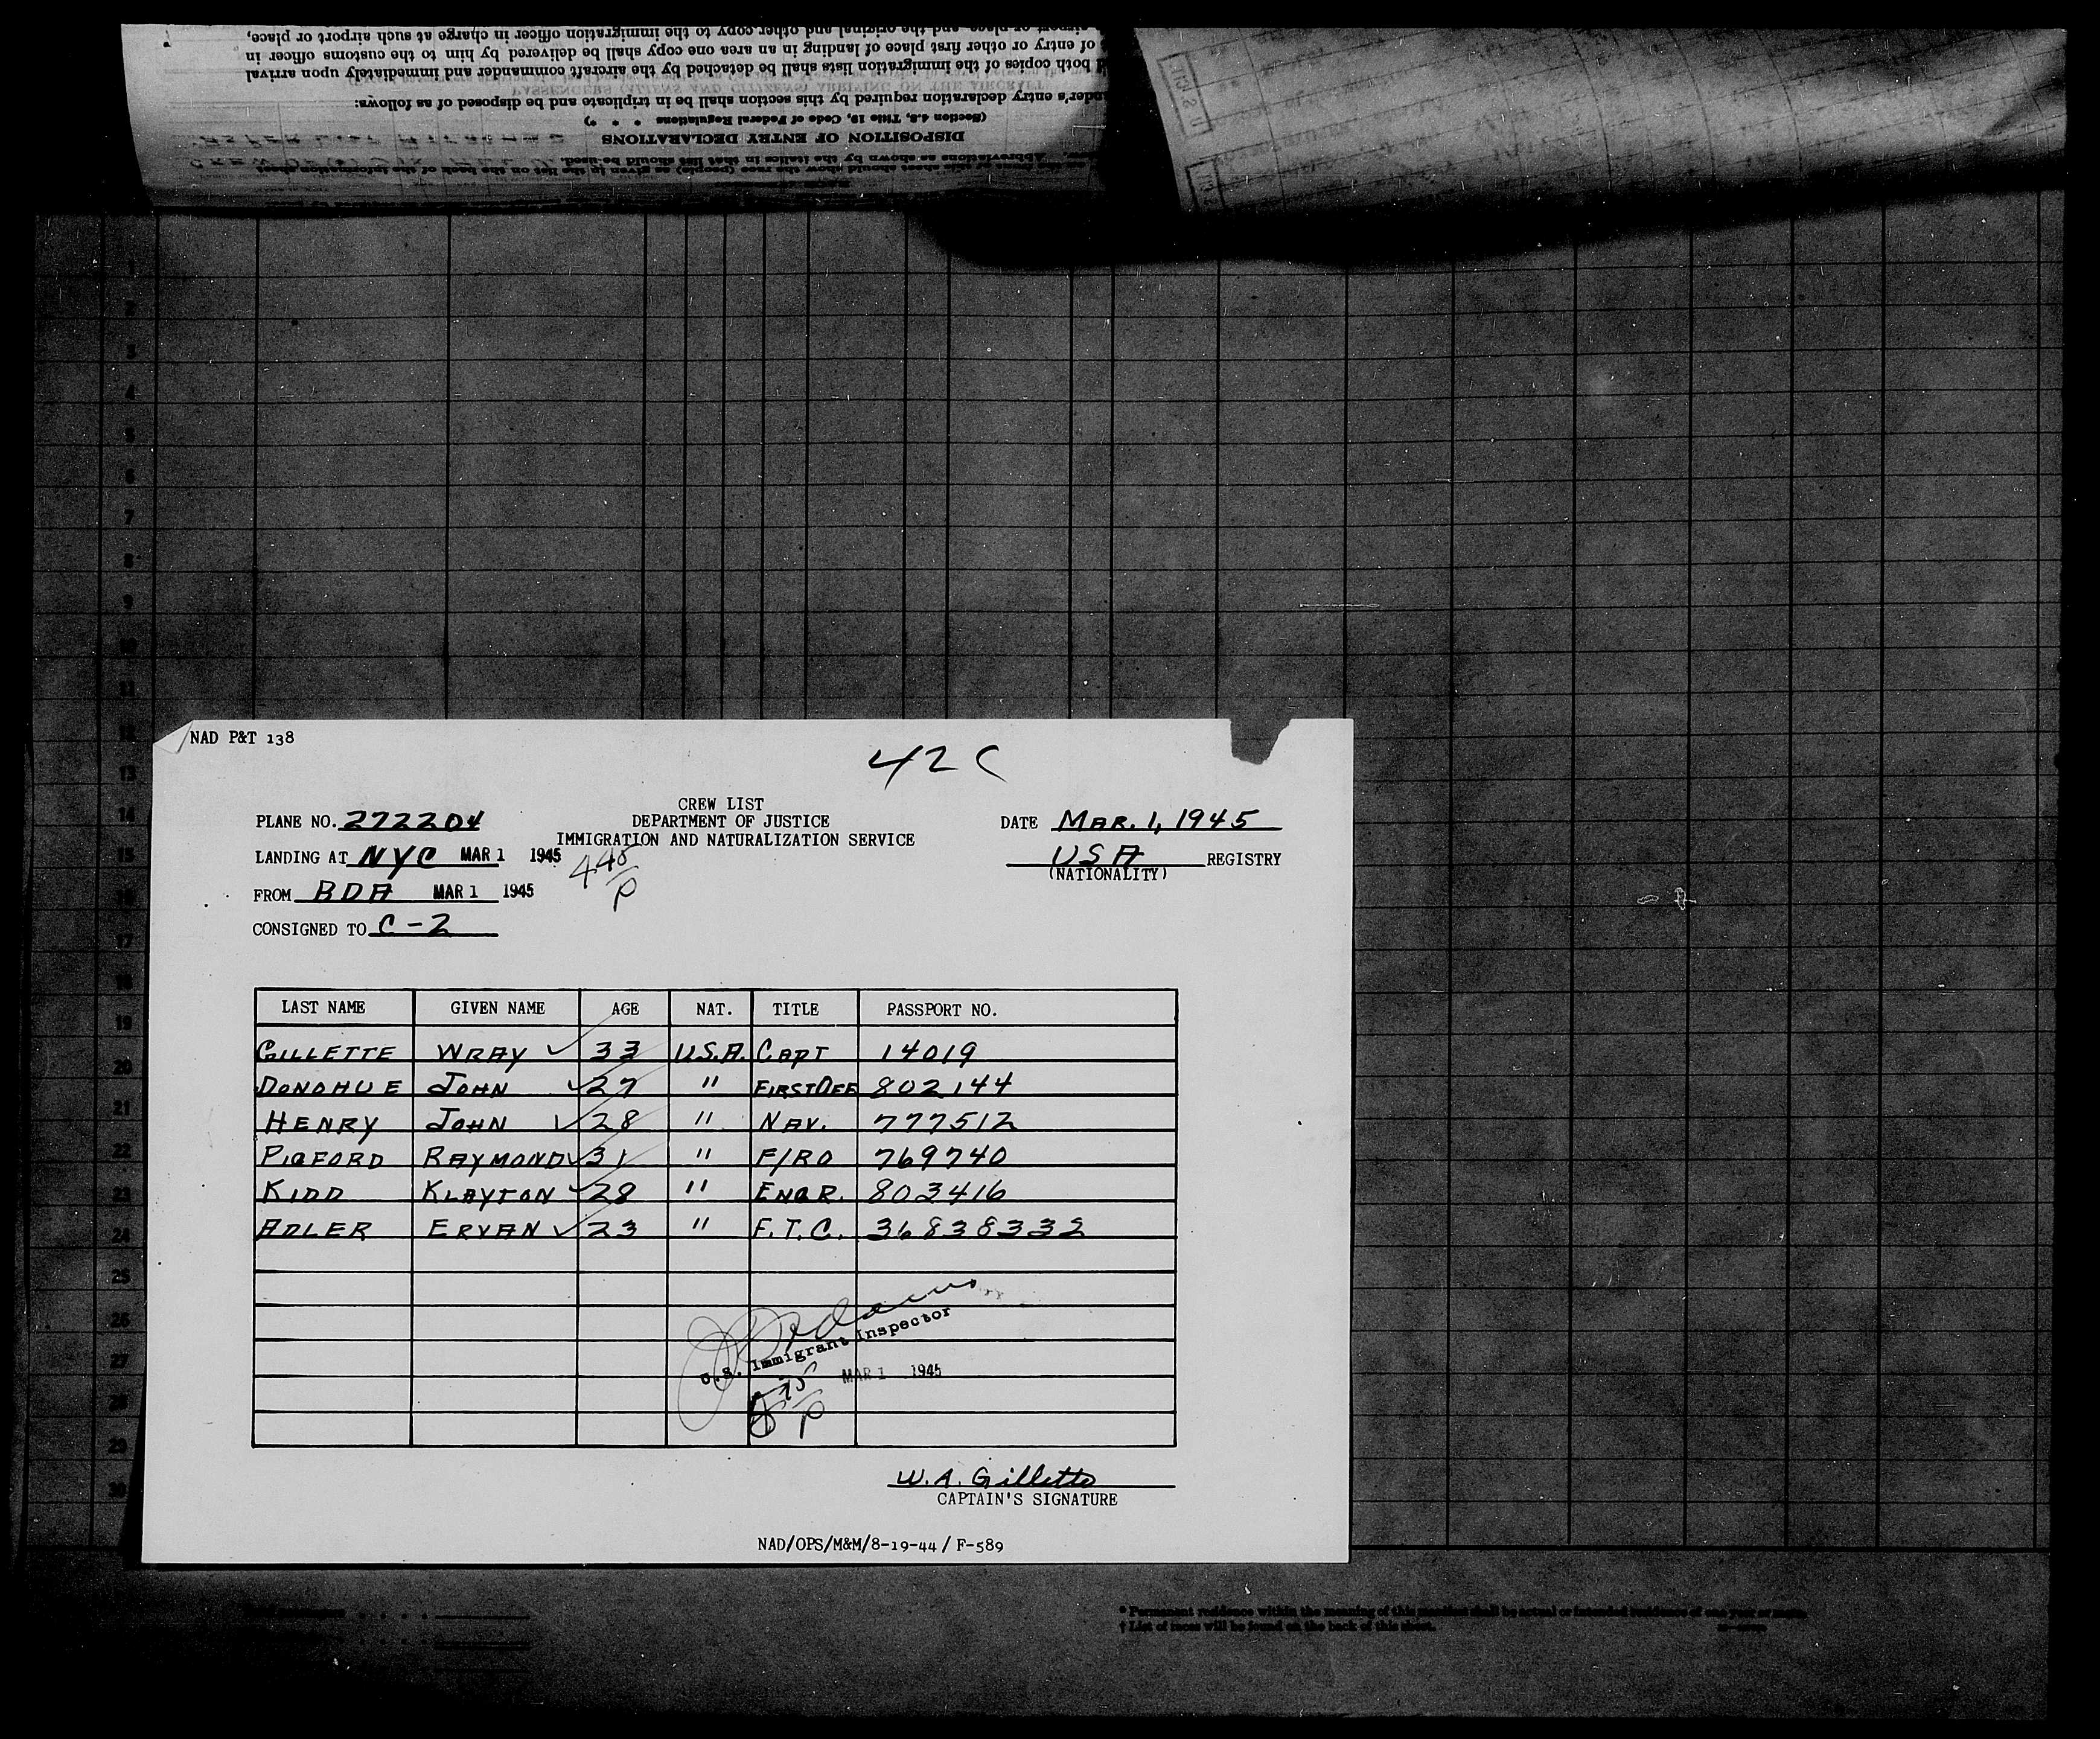 airport or place, and the original and other copy to the immigration officer in charge at such airport or place,
of entry or other first place of landing in an area one copy shall be delivered by him to the customs officer in
both copies of the immigration lists shall be detached by the aircraft commander and immediately upon arrival
entry declaration required by this section shall be in triplicate and be disposed of as follows:
(Section 4.8, Title 19, Code of Federal Regulations * * *)
DISPOSITION OF ENTRY DECLARATIONS
Abbreviations as shown by the italics in that list should be used.
of this sheet should show the race (people) as given in the list on the back of the information sheet
1
2
3
4
5
6
7
8
9
10
11
12
NAD P&T 138
42C
13
CREW LIST
14 PLANE NO. 272204 DEPARTMENT OF JUSTICE DATE MAR. 1, 1945
IMMIGRATION AND NATURALIZATION SERVICE
15 LANDING AT NYC MAR 1 1945 445/P USA REGISTRY
(NATIONALITY)
16 FROM BDA MAR 1 1945
17 CONSIGNED TO C-2
18
19 LAST NAME GIVEN NAME AGE NAT. TITLE PASSPORT NO.
GILLETTE WRAY ✓ 33 U.S.A. CAPT 14019
20 DONOHUE JOHN ✓ 27 " FIRST OFF 802144
21 HENRY JOHN ✓ 28 " NAV. 777512
22 PIGFORD RAYMOND ✓ 31 " F/RO 769740
23 KIDD KLAYTON ✓ 28 " ENGR. 803416
24 ADLER ERVAN ✓ 23 " F.T.C. 36838332
25
26
27 U.S. Immigrant Inspector
MAR 1 1945
28
29
30 W.A. Gillette
CAPTAIN'S SIGNATURE
NAD/OPS/M&M/8-19-44/ F-589
* Permanent residence within the meaning of this shall be actual or intended residence of one year or more.
† List of races will be found on the back of this sheet.